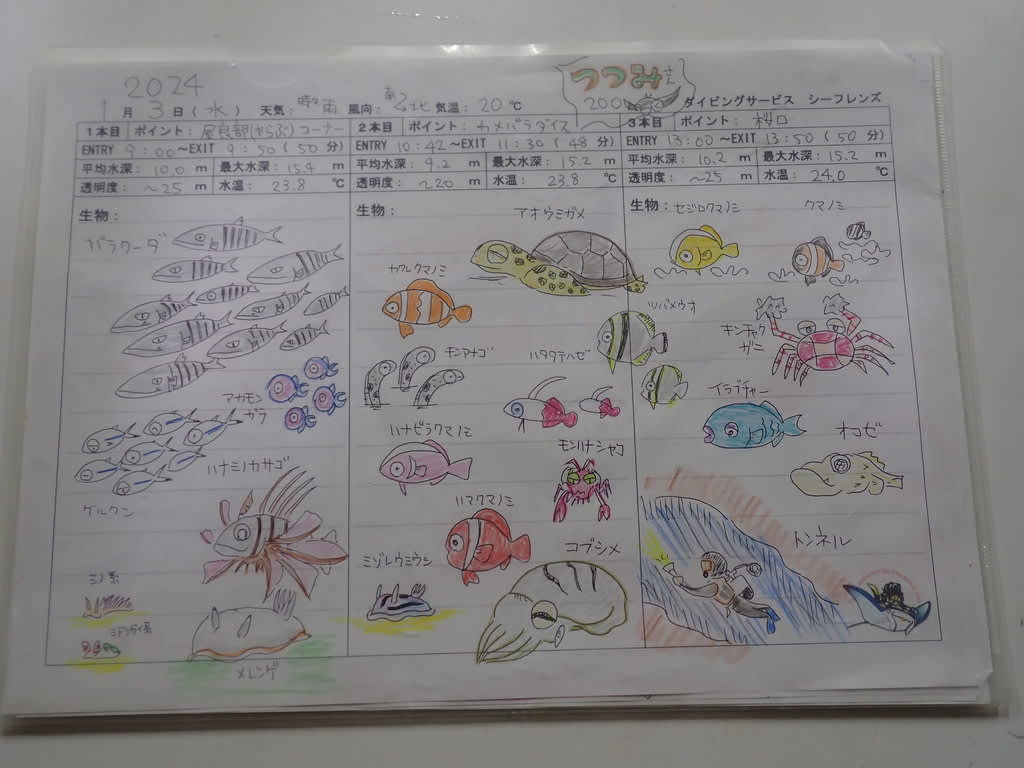 2024
つつみさん
200
1月 3日(水) 天気: 時々雨 風向: 南〜北 気温: 20℃ ダイビングサービス シーフレンズ
1本目 ポイント: 屋良部(やらぶ)コーナー
ENTRY 9:00〜EXIT 9:50(50分)
平均水深: 10.0 m 最大水深: 15.4 m
透明度: 〜25 m 水温: 23.8 ℃
生物:
バラクーダ
アカモンガラ
ハナミノカサゴ
グルクン
ミノ系
ミドリガイ系
メレンゲ
2本目 ポイント: カメパラダイス
ENTRY 10:42〜EXIT 11:30(48分)
平均水深: 9.2 m 最大水深: 15.2 m
透明度: 〜20 m 水温: 23.8 ℃
生物:
アオウミガメ
カクレクマノミ
モンアナゴ
ハタタテハゼ
ハナビラクマノミ
モンハナシャコ
ハマクマノミ
ミゾレウミウシ
コブシメ
3本目 ポイント:
ENTRY 13:00〜EXIT 13:50(50分)
平均水深: 10.2 m 最大水深: 15.2 m
透明度: 〜25 m 水温: 24.0 ℃
生物:
セジロクマノミ
クマノミ
ツバメウオ
キンチャクガニ
イラブチャー
オコゼ
トンネル